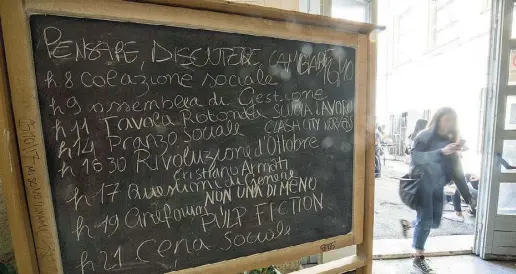 PENSARE, DISCUTERE, CAMBIARE 16/10
h 8 colazione sociale
h 9 assemblea di Gestione
h 11 Tavola Rotonda SCUOLA LAVORO
h 14 Pranzo Sociale CLASH CITY WORKERS
h 16 30 Rivoluzione d'Ottobre
Cristiano Armati
h 17 Questioni di Genere
NON UNA DI MENO
h 19 Cineforum PULP FICTION
h 21 Cena sociale